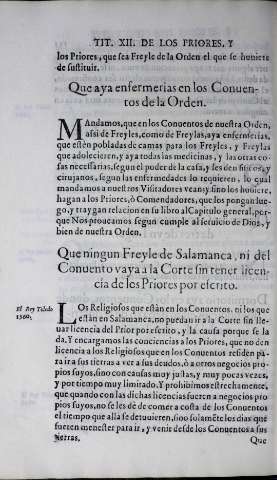 TIT. XII. DE LOS PRIORES, Y
los Priores, que sea Freyle de la Orden el que se huuiere
de sustituir.
Que aya enfermerias en los Conuen-
tos de la Orden.
MAndamos, que en los Conuentos de nuestra Orden,
assi de Freyles, como de Freylas, aya enfermerias,
que estèn pobladas de camas para los Freyles, y Freylas
que adolecieren, y aya todas las medicinas, y las otras co-
sas necessarias, segun el poder de la casa, y les den fisicos, y
cirujanos, segun las enfermedades lo requieren, lo qual
mandamos a nuestros Visitadores vean: y sino los huuiere,
hagan a los Priores, ò Comendadores, que los pongan lue-
go, y traygan relacion en su libro al Capitulo general, por-
que Nos proueamos segun cumple al seruicio de Dios, y
bien de nuestra Orden.
Que ningun Freyle de Salamanca, ni del
Conuento vaya a la Corte sin tener licen-
cia de los Priores por escrito.
El Rey Toledo
1560.
LOs Religiosos que están en los Conuentos, ni los que
están en Salamanca, no puedan ir a la Corte sin lle-
uar licencia del Prior por escrito, y la causa porque se la
da. Y encargamos las conciencias a los Priores, que no den
licencia a los Religiosos que en los Conuentos residen pâ-
ra ir a sus tierras a ver a sus deudos, ò a otros negocios pro-
pios suyos, sino con causas muy justas, y muy pocas vezes,
y por tiempo muy limitado. Y prohibimos estrechamente,
que quando con las dichas licencias fueren a negocios pro-
pios suyos, no se les dè de comer a costa de los Conuentos
el tiempo que allà se detuuieren, sino solamẽte los dias que
fueren menester para ir, y venir desde los Conuentos a sus
tierras.
Que